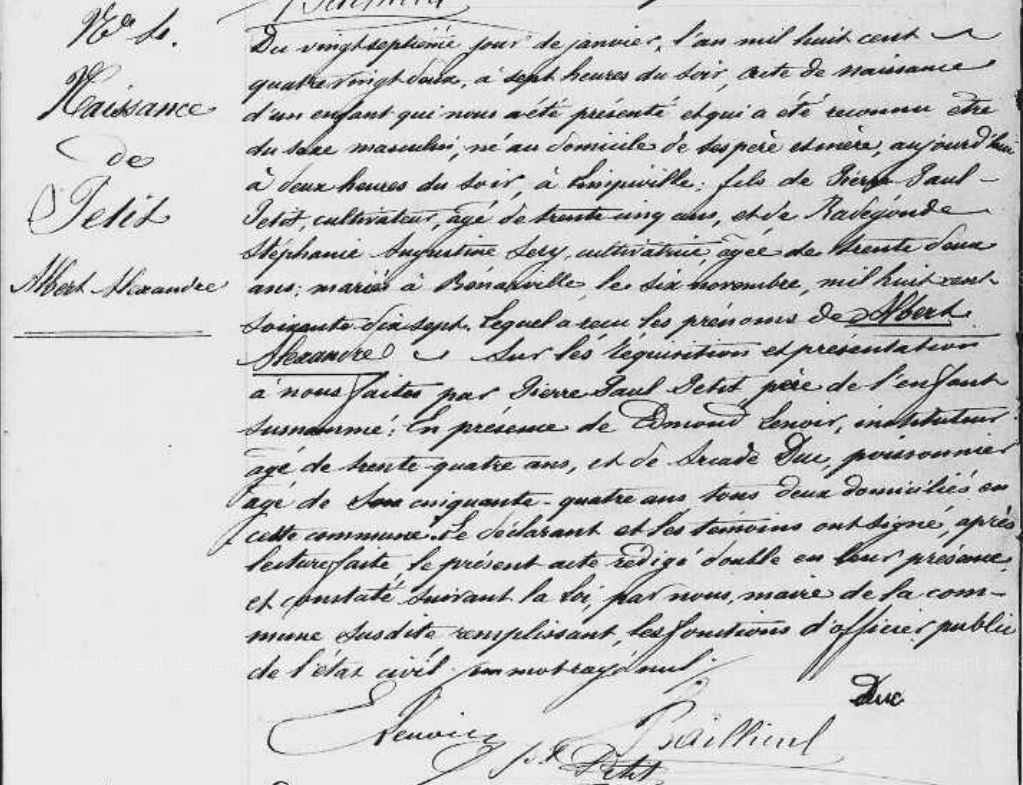 N° 4.
Naissance
de
Petit
Albert Alexandre
Du vingt septième jour de janvier, l'an mil huit cent
quatre vingt deux, à sept heures du soir, acte de naissance
d'un enfant qui nous a été présenté et qui a été reconnu être
du sexe masculin, né au domicile de ses père et mère, aujourd'hui
à deux heures du soir, à Limpiville; fils de Pierre Paul
Petit, cultivateur, âgé de trente cinq ans, et de Radegonde
Stéphanie Augustine cultivatrice, âgée de trente deux
ans; mariés à Bénarville, le six novembre, mil huit cent
soixante-dix sept. Lequel a reçu les prénoms de Albert
Alexandre Sur les réquisition et présentation
à nous faites par Pierre Paul Petit père de l'enfant
susnommé; En présence de Edmond Lenoir, instituteur
âgé de trente quatre ans, et de Arcade Duc, poissonnier
âgé de cinquante-quatre ans tous deux domiciliés en
cette commune. Le déclarant et les témoins ont signé, après
lecture faite, le présent acte rédigé double en leur présence
et constaté suivant la loi, par nous, maire de la com-
mune susdite remplissant les fonctions d'officier public
de l'état civil un mot rayé nul.
Duc
Lenoir
Petit
Département de Seine